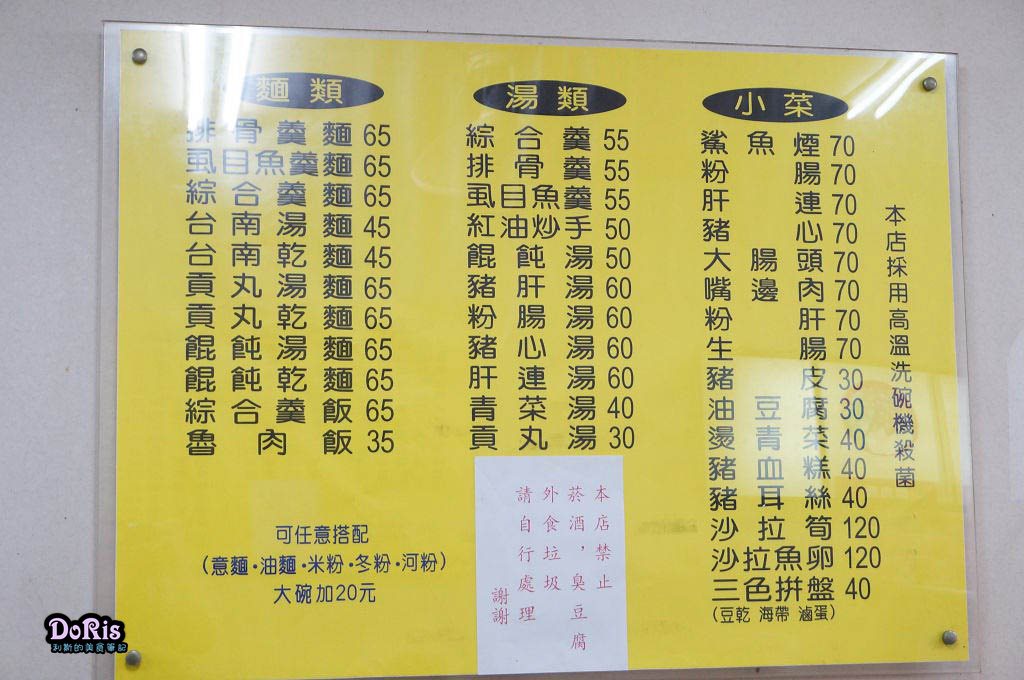 麵類
排骨羹麵 65
虱目魚羹麵 65
綜合羹麵 65
台南湯麵 45
台南乾麵 45
貢丸湯麵 65
貢丸乾麵 65
餛飩湯麵 65
餛飩乾麵 65
綜合羹飯 65
魯肉飯 35
可任意搭配
(意麵·油麵·米粉·冬粉·河粉)
大碗加20元
湯類
綜合羹 55
排骨羹 55
虱目魚羹 55
紅油炒手 50
餛飩湯 50
豬肝湯 60
粉腸湯 60
豬心湯 60
肝連湯 60
青菜湯 40
貢丸湯 30
本店禁止
菸酒，臭豆腐
外食垃圾
請自行處理
謝謝
小菜
鯊魚煙 70
粉腸 70
肝連 70
豬心 70
大腸頭 70
嘴邊肉 70
粉肝 70
生腸 70
豬皮 30
油豆腐 30
燙青菜 40
豬血糕 40
豬耳絲 40
沙拉筍 120
沙拉魚卵 120
三色拼盤 40
(豆乾 海帶 滷蛋)
本店採用高溫洗碗機殺菌
DoRis
利斯的美食筆記